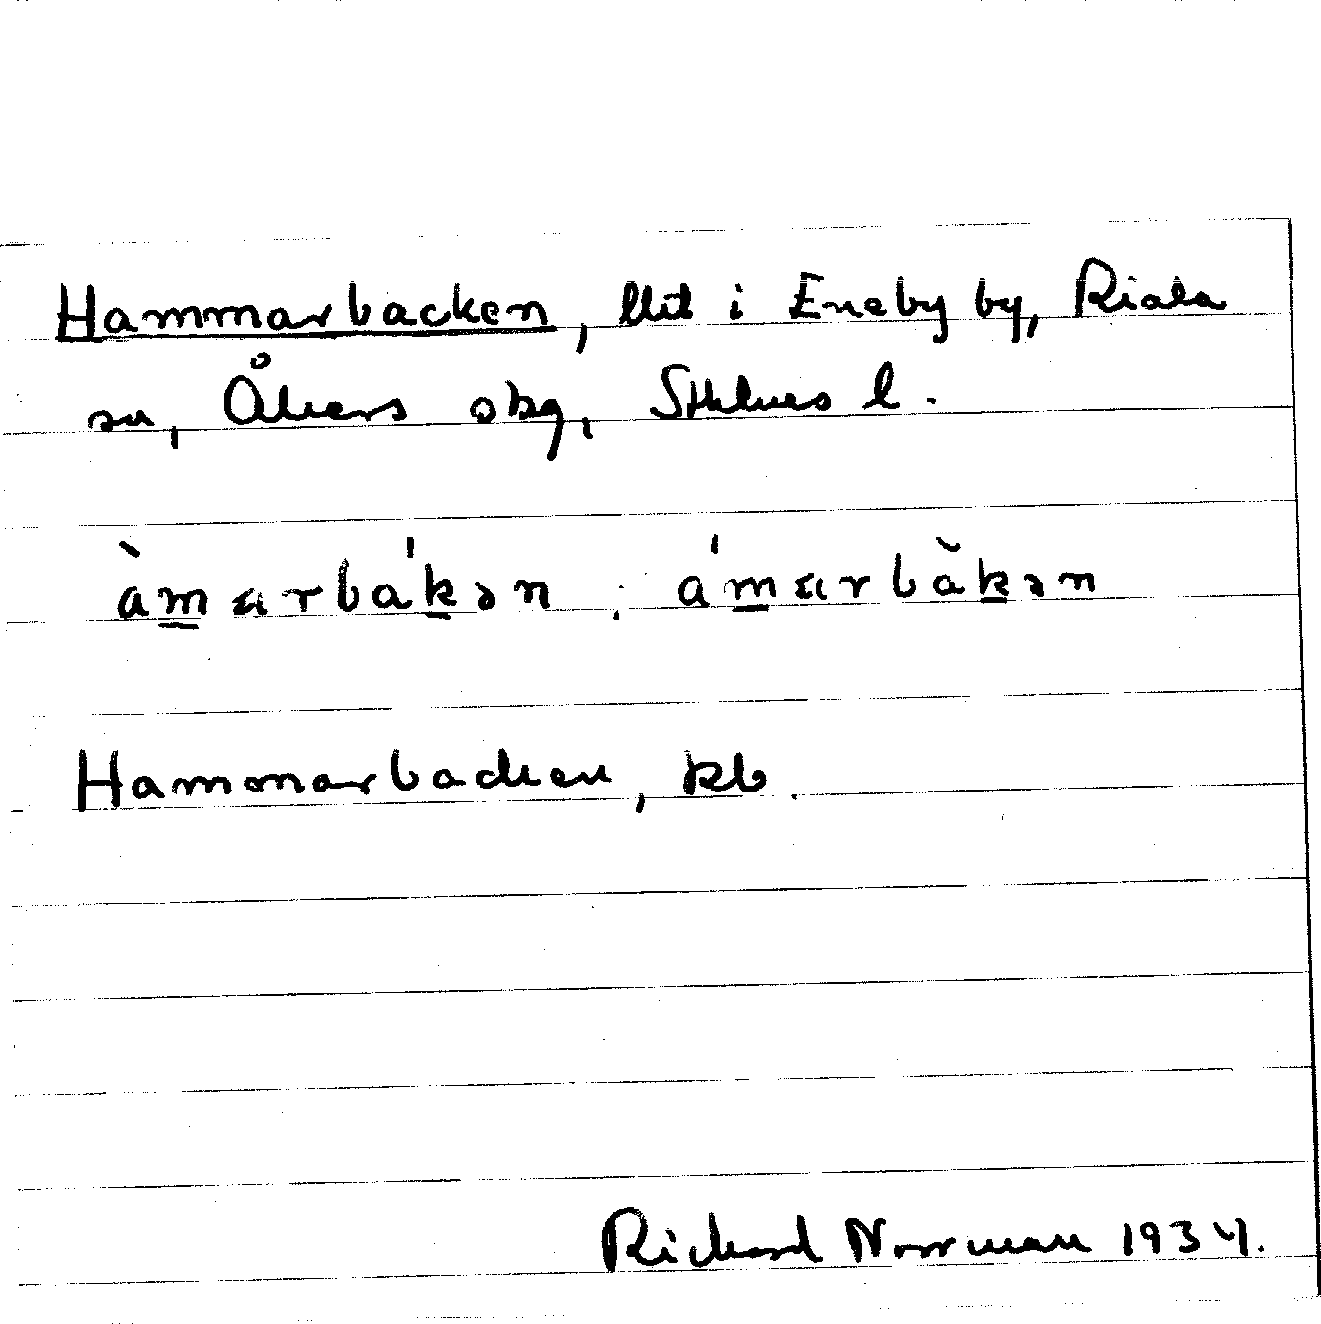 Hammarbacken, llit i Eneby by, Riala
sn, Åkers skg, Sthlms l.
àmarbákən . ámarbàkən
Hammarbacken, kb.
Rickard Norrman 1934.